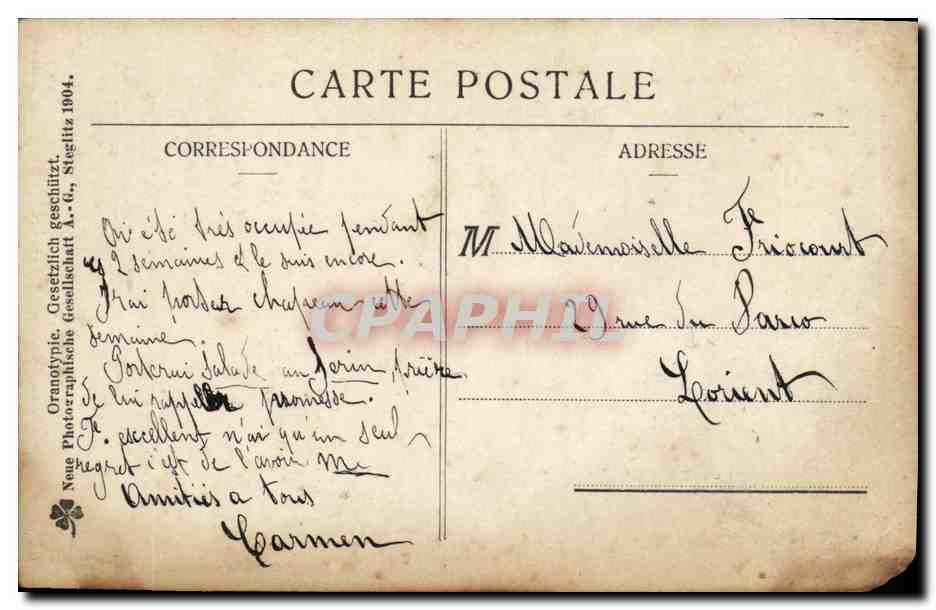 CARTE POSTALE
CORRESPONDANCE
ADRESSE
Oranotypie. Gesetzlich geschützt.
Neue Photographische Gesellschaft A.-G., Steglitz 1904.
été très occupée pendant
2 semaines & le suis encore.
J'irai porter chapeau cette
semaine.
Porterai Salade au Serin, prière
de lui rappeler promesse.
excellent, n'ai qu'un seul
regret c'est de l'avoir
Amitiés a tous
Carmen
M Mademoiselle Friocourt
29 rue du Parco
Lorient
CPAPHIL